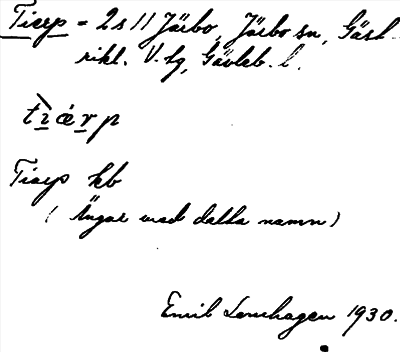 Tierp = 2s11 Järbo, Järbo sn, Gäst-
rikl. V. tg, Gävleb. l.
tìærp
Tierp kb
( Ängar med detta namn )
Emil Lenhagen 1930.